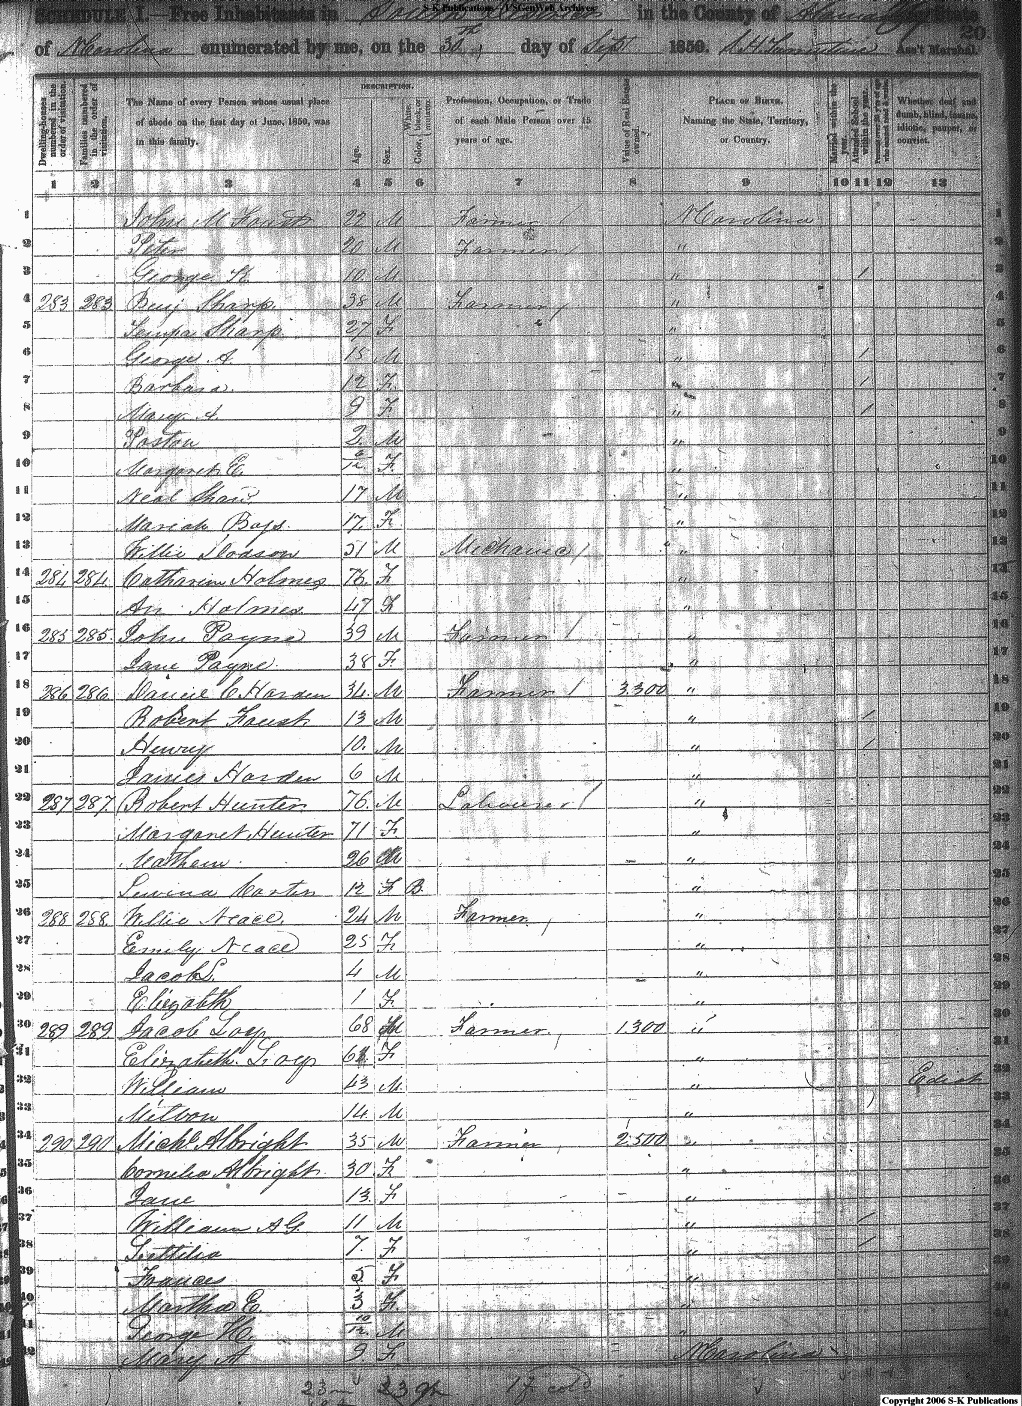 S-K Publications - USGenWeb Archives
SCHEDULE I.—Free Inhabitants in South in the County of State
of N Carolina enumerated by me, on the 30th day of Sept 1850. Ass't Marshal.
20
Dwelling-houses numbered in the order of visitation.
Families numbered in the order of visitation.
The Name of every Person whose usual place of abode on the first day of June, 1850, was in this family.
DESCRIPTION.
Age.
Sex.
Color,
Profession, Occupation, or Trade of each Male Person over 15 years of age.
Value of Real Estate owned.
PLACE OF BIRTH.
Naming the State, Territory, or Country.
Married within the year.
Attended School within the year.
Whether deaf and dumb, blind, insane, idiotic, pauper, or convict.
1 2 3 4 5 6 7 8 9 10 11 12 13
1 John M Faust 22 M Farmer N Carolina 1
2 Peter 20 M Farmer " 2
3 George 10 M " / 3
4 283 283 Benj Sharp 38 M Farmer / " 4
5 Tempa Sharp 27 F " 5
6 George A. 15 M " / 6
7 Barbara 12 F " / 7
8 Mary A. 9 F " / 8
9 Poston 2 M " 9
10 Margaret E. 6/12 F " 10
11 Neal Shaw 17 M " 11
12 Mariah 17 F " 12
13 Willie Dodson 51 M Mechanic / " 13
14 284 284 Catharine Holmes 76 F " 14
15 An Holmes 47 F " 15
16 285 285 John Payne 39 M Farmer / " 16
17 Jane Payne 38 F " 17
18 286 286 Daniel C Harden 34 M Farmer / 3300 " 18
19 Robert Faust 13 M " / 19
20 Henry 10 M " / 20
21 James Harden 6 M " 21
22 287 287 Robert Hunter 76 M Labourer / " 22
23 Margaret Hunter 71 F " 23
24 Mathew 26 M " 24
25 12 F B " 25
26 288 288 Willie 24 M Farmer / " 26
27 Emily 25 F " 27
28 Jacob L 4 M " 28
29 Elizabth 1 F " 29
30 289 289 Jacob Loy 68 M Farmer 1300 " 30
31 Elizabeth Loy F " 31
32 William 43 M " Ediot 32
33 Milton 14 M " / 33
34 290 290 Michl Albright 35 M Farmer 2500 " 34
35 Cornelia Albright 30 F " 35
36 Jane 13 F " 36
37 William A G. 11 M " / 37
38 Lettitia 7 F " / 38
39 Frances 5 F " 39
40 Martha E. 3 F " 40
41 George H. 10/12 M " 41
42 Mary A 9 F N Carolina
23 m 17 cold
Copyright 2006 S-K Publications